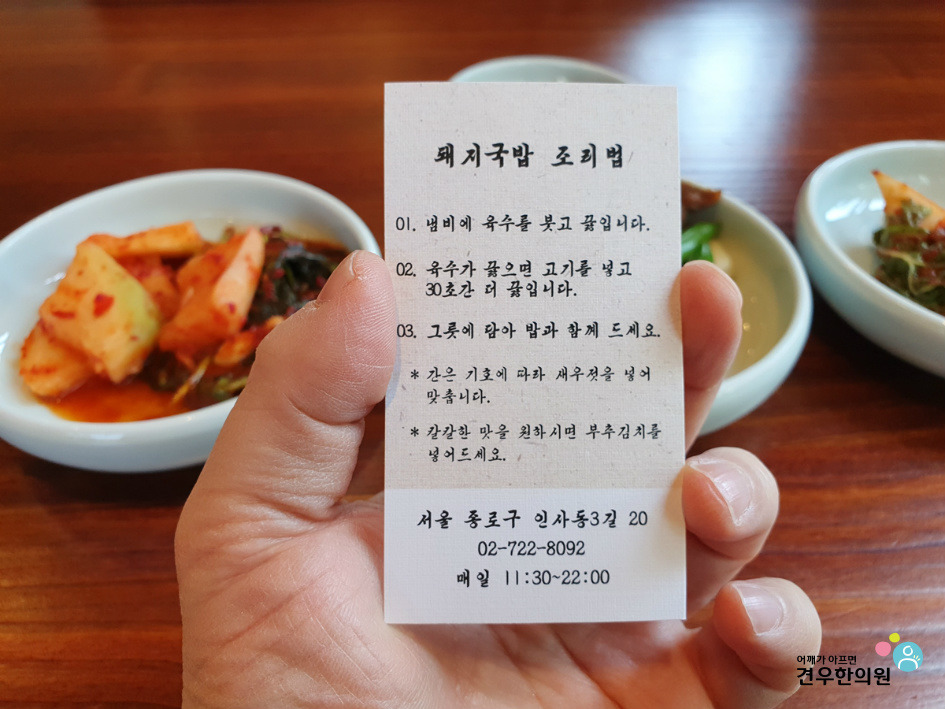 돼지국밥 조리법
01. 냄비에 육수를 붓고 끓입니다.
02. 육수가 끓으면 고기를 넣고
30초간 더 끓입니다.
03. 그릇에 담아 밥과 함께 드세요.
* 간은 기호에 따라 새우젓을 넣어
맞춥니다.
* 칼칼한 맛을 원하시면 부추김치를
넣어드세요.
서울 종로구 인사동3길 20
02-722-8092
매일 11:30~22:00
어깨가 아프면
견우한의원